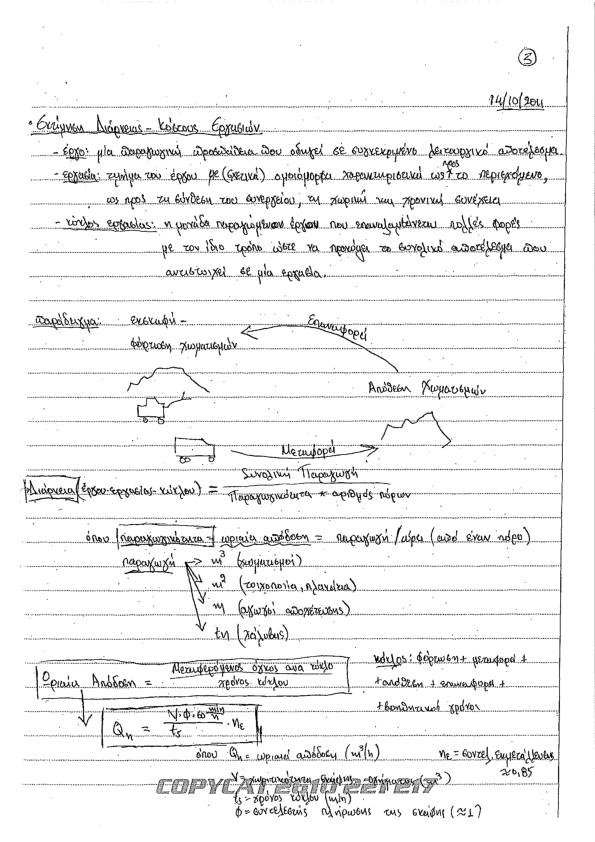 3
14/10/2011
• Εκτίμηση Διάρκειας - Κόστους Εργασιών
- έργο: μία παραγωγική προσπάθεια που οδηγεί σε συγκεκριμένο λειτουργικό αποτέλεσμα.
- εργασία: τμήμα του έργου με (σχετικά) ομοιόμορφα χαρακτηριστικά ως προς το περιεχόμενο,
ως προς τη σύνθεση του συνεργείου, τη χωρική και χρονική συνέχεια
- κύκλος εργασίας: η μονάδα παραγόμενου έργου που επαναλαμβάνεται πολλές φορές
με τον ίδιο τρόπο ώστε να προκύψει το συνολικό αποτέλεσμα που
αντιστοιχεί σε μία εργασία.
παράδειγμα: εκσκαφή -
φόρτωση χωματισμών
Επαναφορά
Απόθεση Χωματισμών
Μεταφορά
Διάρκεια (έργου-εργασίας-κύκλου) = Συνολική Παραγωγή
Παραγωγικότητα * αριθμός πόρων
όπου παραγωγικότητα - ωριαία απόδοση = παραγωγή / ώρα (από έναν πόρο)
παραγωγή → m³ (χωματισμοί)
m² (τοιχοποιία, πλακάκια)
m (αγωγοί αποχέτευσης)
tn (χάλυβας)
Ωριαία Απόδοση = Μεταφερόμενος όγκος ανα κύκλο
χρόνος κύκλου
κύκλος: φόρτωση + μεταφορά +
+ απόθεση + επαναφορά +
+ βοηθητικοί χρόνοι
Qₙ = V·φ·60 min/h / tₛ · n_E
όπου Qₙ = ωριαία απόδοση (m³/h)
n_E = συντελ. εκμετάλλευσης
≈ 0,85
V = χωρητικότητα σκάφης οχήματος (m³)
COPYCAT 2610 221217
tₛ = χρόνος κύκλου (min)
φ = συντελεστής πλήρωσης της σκάφης (≈1)